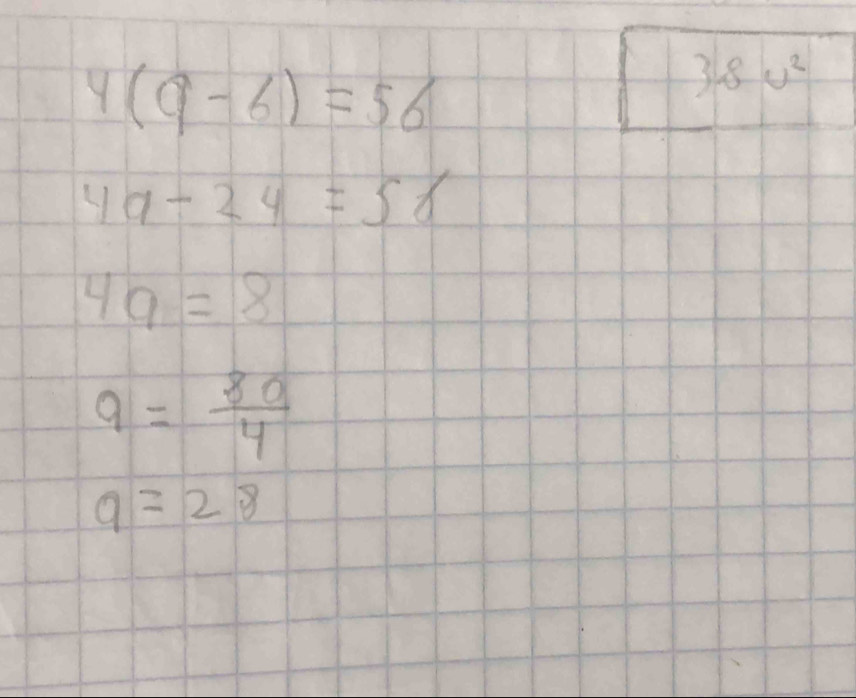 4(a-6)=56
38 u²
4a-24=56
4a=8
a=80/4
a=28